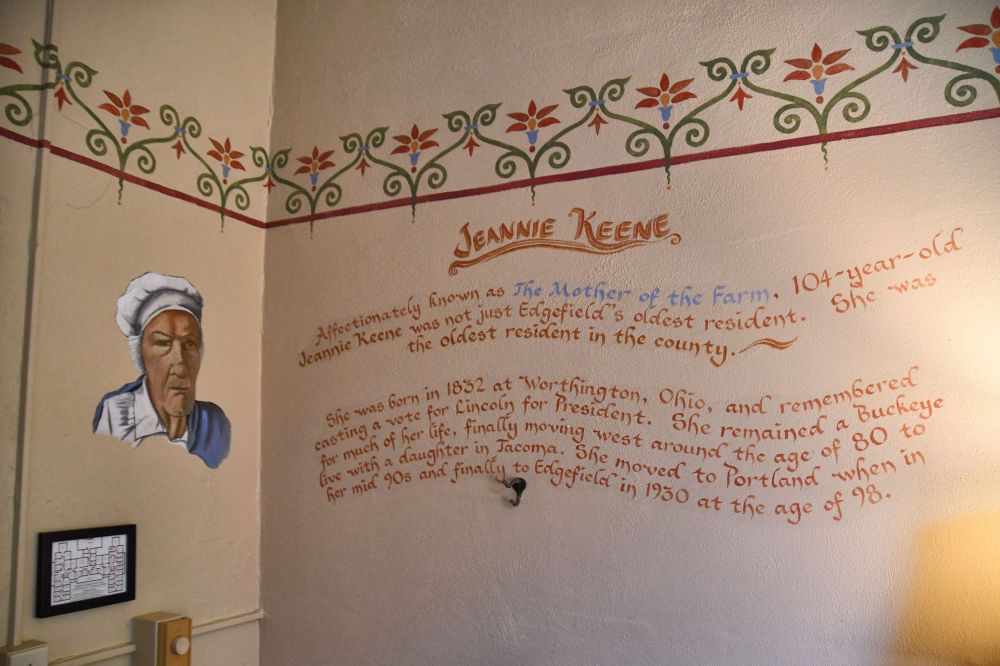 JEANNIE KEENE
Affectionately known as The Mother of the Farm, 104-year-old
Jeannie Keene was not just Edgefield's oldest resident. She was
the oldest resident in the county.
She was born in 1832 at Worthington, Ohio, and remembered
casting a vote for Lincoln for President. She remained a Buckeye
for much of her life, finally moving west around the age of 80 to
live with a daughter in Tacoma. She moved to Portland when in
her mid 90s and finally to Edgefield in 1930 at the age of 98.